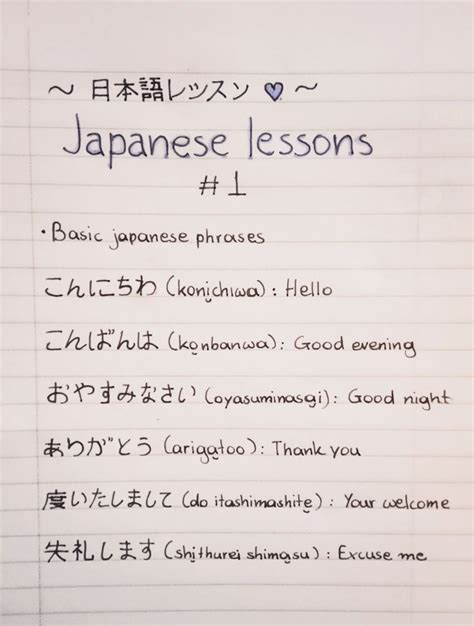 ~ 日本語レッスン 💜 ~
Japanese lessons
#1
・Basic japanese phrases
こんにちわ (konichiwa) : Hello
こんばんは (konbanwa) : Good evening
おやすみなさい (oyasuminasai) : Good night
ありがとう (arigatoo) : Thank you
度いたしまして (do itashimashite) : Your welcome
失礼します (shithurei shimasu) : Excuse me